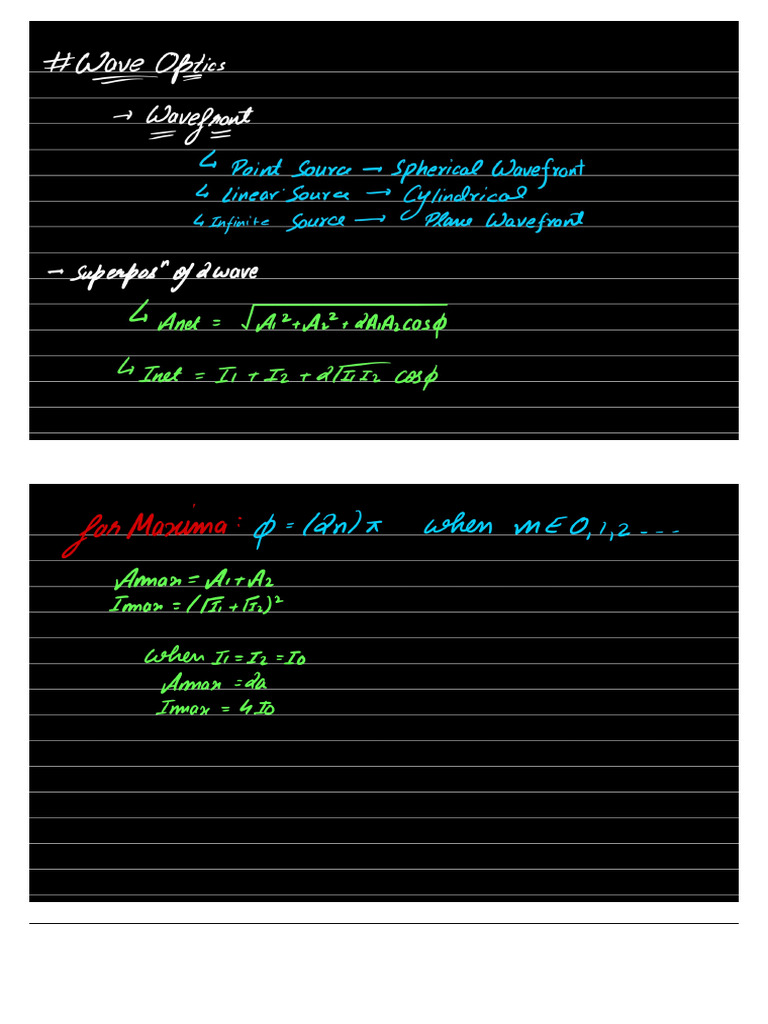 #Wave Optics
→ Wavefront
↳ Point Source → Spherical Wavefront
↳ Linear Source → Cylindrical
↳ Infinite Source → Plane Wavefront
→ Superposⁿ of 2 wave
↳ Anet = √(A₁² + A₂² + 2A₁A₂ cosϕ)
↳ Inet = I₁ + I₂ + 2√(I₁ I₂) cosϕ
for Maxima: ϕ = (2n)π when m ∈ 0, 1, 2 ---
Amax = A₁ + A₂
Imax = (√I₁ + √I₂)²
when I₁ = I₂ = I0
Amax = 2a
Imax = 4I0